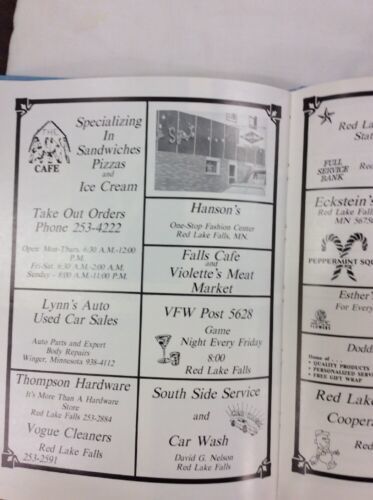 THE
CAFE
Specializing
In
Sandwiches
Pizzas
and
Ice Cream
Take Out Orders
Phone 253-4222
Open: Mon-Thurs. 6:30 A.M.-12:00
P.M.
Fri-Sat. 6:30 A.M.-2:00 A.M.
Sunday - 8:00 A.M.-11:00 P.M.
Lynn's Auto
Used Car Sales
Auto Parts and Expert
Body Repairs
Winger, Minnesota 938-4112
Thompson Hardware
It's More Than A Hardware
Store
Red Lake Falls 253-2884
Vogue Cleaners
Red Lake Falls
253-2591
Hanson's
One-Stop Fashion Center
Red Lake Falls, MN.
Falls Cafe
and
Violette's Meat
Market
VFW Post 5628
Game
Night Every Friday
8:00
Red Lake Falls
South Side Service
and
Car Wash
David G. Nelson
Red Lake Falls
Red La
Stat
FULL
SERVICE
BANK
Red
Eckstein's
Red Lake Falls
MN 5675
PEPPERMINT SQ
Esther'
For Every
FLOWERS
Dodd
Home of . . .
• QUALITY PRODUCTS
• PERSONALIZED SERV
• FREE GIFT WRAP
Red Lake
Coopera
Red